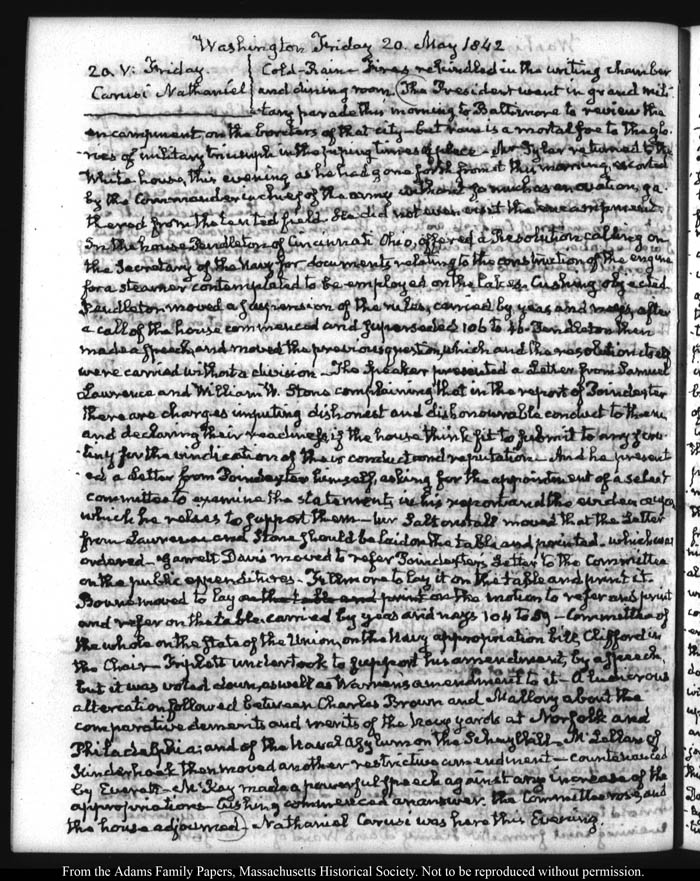 Washington Friday 20. May 1842
20. V: Friday.
Carusi Nathaniel
Cold-Rain-Fires rekindled in the writing chamber
and dining room. (The President went in grand mili-
tary parade this morning to Baltimore to review the
encampment, on the borders of that city - but rain is a mortal foe to the glo-
ries of military triumph in the piping times of peace - Mr Tyler returned to the
White house, this evening as he had gone forth from it this morning, escorted
by the Commander in chief of the army without so much as an ovation, ga-
thered from the tented field. He did not even visit the encampment.
In the house Pendleton of Cincinnati Ohio, offered a Resolution calling on
the Secretary of the Navy for documents relating to the construction of the engine
for a steamer contemplated to be employed on the Lakes. Cushing objected
Pendleton moved a suspension of the rules, carried by yeas and nays, after
a call of the house commenced and superseded 106 to 46. Pendleton then
made a speech, and moved the previous question, which and the resolution itself
were carried without a division - The Speaker presented a Letter from Samuel
Lawrence and William W. Stone complaining that in the report of Poindexter
there are charges imputing dishonest and dishonourable conduct to them
and declaring their readiness if the house think fit to submit to any scru-
tiny for the vindication of their conduct and reputation. And he present-
ed a Letter from Poindexter himself, asking for the appointment of a select
committee to examine the statements in his report and the evidence upon
which he relies to support them - Saltonstall moved that the Letter
from Lawrence and Stone should be laid on the table and printed. which was
ordered - Garrett Davis moved to refer Poindexter's Letter to the Committee
on the public expenditures - Fillmore to lay it on the table and print it.
Bowne moved to lay on the table and print on the motion to refer and print
and refer on the table. carried by yeas and nays 104 to 59 - Committee of
the whole on the state of the Union, on the Navy appropriation bill Clifford in
the Chair - Triplett undertook to support his amendment, by a speech,
but it was voted down, as well as Warren's amendment to it - A ludicrous
altercation followed between Charles Brown and Mallory about the
comparative demerits and merits of the Navy yards at Norfolk and
Philadelphia; and of the Naval Asylum on the Schuylkill - McClellan of
Kinderhook then moved another restrictive amendment - countenanced
by Everett - McKay made a powerful speech against any increase of the
appropriations - Cushing commenced an answer. the Committee rose, and
the house adjourned) - Nathaniel Carusi was here this Evening.
From the Adams Family Papers, Massachusetts Historical Society. Not to be reproduced without permission.